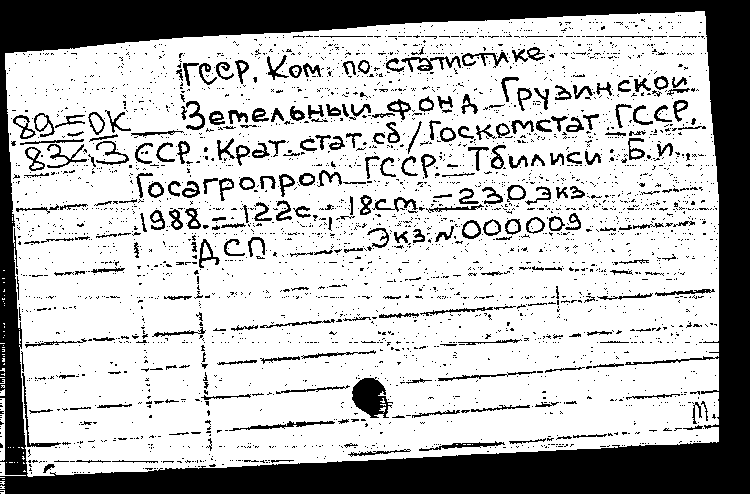 ГССР. Ком. по статистике.
89-5ДК Зетельный фонд Грузинской
834,3 ССР: Крат. стат. сб/Госкомстат ГССР,
Госагропром ГССР. - Тбилиси: Б.и.,
1988. - 122с.; 18см - 230 экз
ДСП. Экз. N.000009
т.